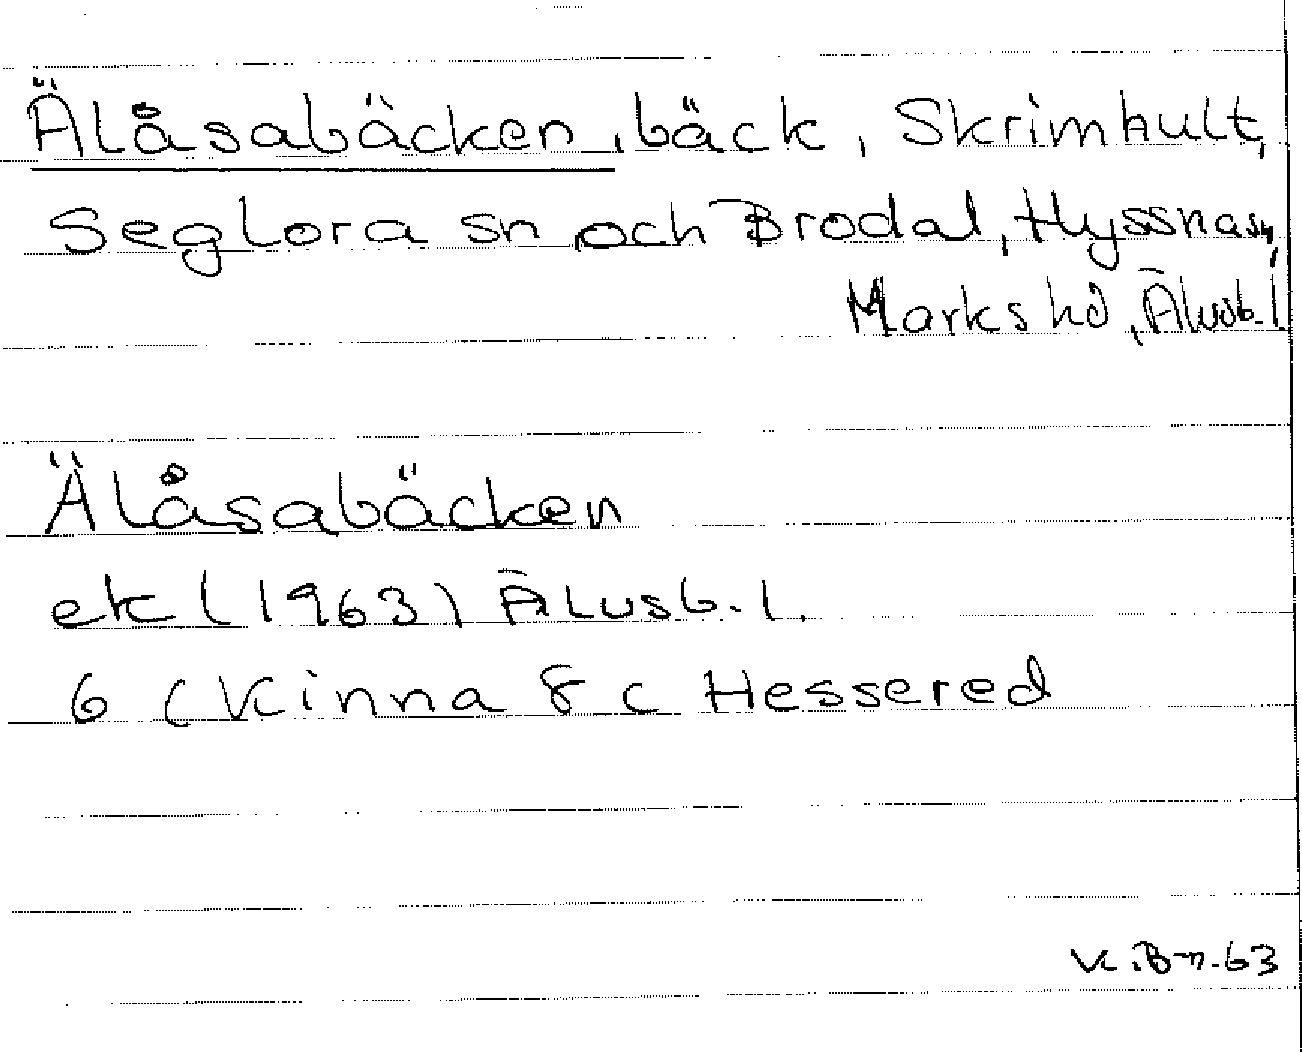 Älåsabäcken, bäck, Skrimhult,
Seglora sn och Brodal, Hyssna sn,
Marks hd, Älvsb. l.
Älåsabäcken
ek (1963) Älvsb. l.
6 (Kinna 8 c Hessered
K.Bn.63